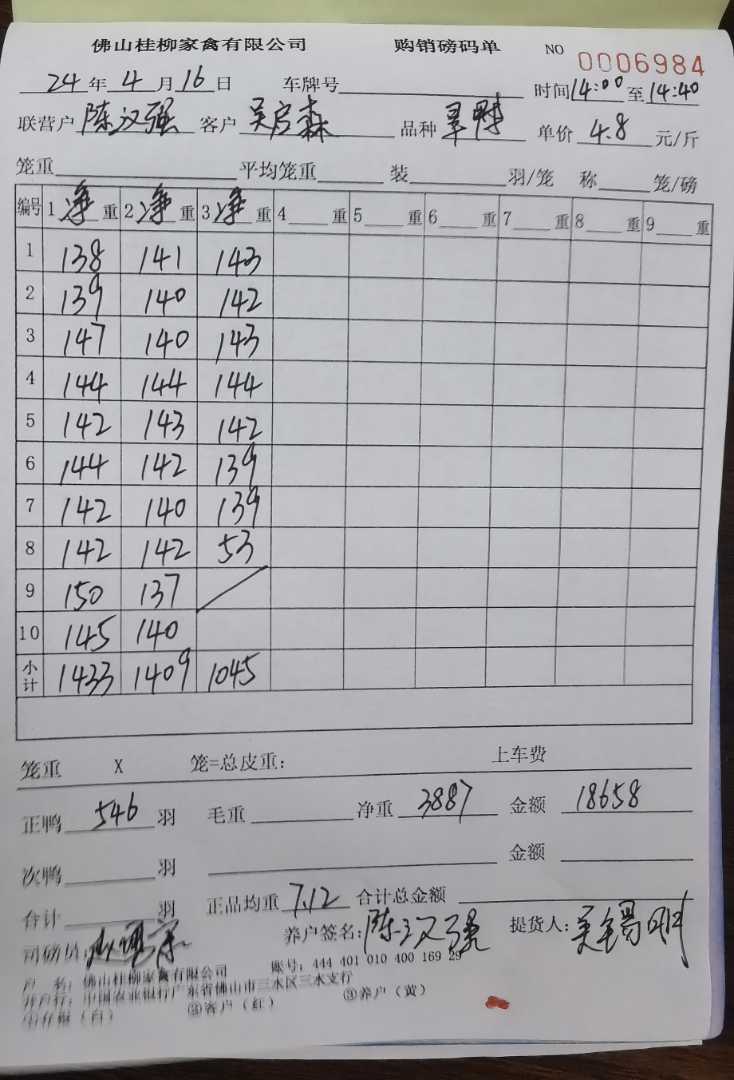 佛山桂柳家禽有限公司 购销磅码单 NO 0006984
24年4月16日 车牌号 时间14:00至14:40
联营户 陈汉强 客户 吴启森 品种 单价 4.8 元/斤
笼重 平均笼重 装 羽/笼 称 笼/磅
编号 1净重 2净重 3净重 4 重 5 重 6 重 7 重 8 重 9 重
1 138 141 143
2 139 140 142
3 147 140 143
4 144 144 144
5 142 143 142
6 144 142 139
7 142 140 139
8 142 142 53
9 150 137 /
10 145 140
小计 1433 1409 1045
笼重 X 笼=总皮重: 上车费
正鸭 546 羽 毛重 净重 3887 金额 18658
次鸭 羽 金额
合计 羽 正品均重 7.12 合计总金额
司磅员: 养户签名:陈汉强 提货人: 吴锡明
户 名: 佛山桂柳家禽有限公司 账号: 444 401 010 400 169 29
开户行: 中国农业银行广东省佛山市三水区三水支行
(白) ②客户(红) ③养户(黄)